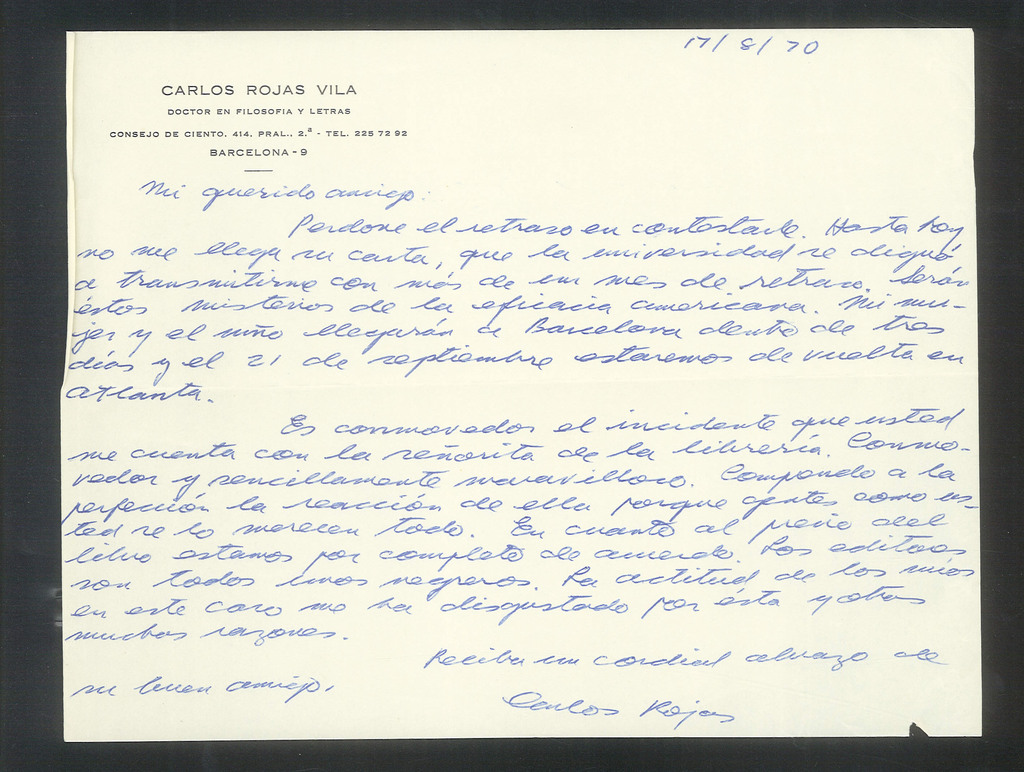 17/8/70
CARLOS ROJAS VILA
DOCTOR EN FILOSOFIA Y LETRAS
CONSEJO DE CIENTO, 414, PRAL., 2.ª - TEL. 225 72 92
BARCELONA - 9
Mi querido amigo:
Perdone el retraso en contestarle. Hasta hoy
no me llega su carta, que la universidad se dignó
a transmitirme con más de un mes de retraso. Serán
éstos misterios de la eficacia americana. Mi mu-
jer y el niño llegarán a Barcelona dentro de tres
días y el 21 de septiembre estaremos de vuelta en
Atlanta.
Es conmovedor el incidente que usted
me cuenta con la señorita de la librería. Conmo-
vedor y sencillamente maravilloso. Comprendo a la
perfección la reacción de ella porque gentes como us-
ted se lo merecen todo. En cuanto al precio del
libro estamos por completo de acuerdo. Los editores
son todos unos negreros. La actitud de los míos
en este caso me ha disgustado por ésta y otras
muchas razones.
Reciba un cordial abrazo de
su buen amigo,
Carlos Rojas